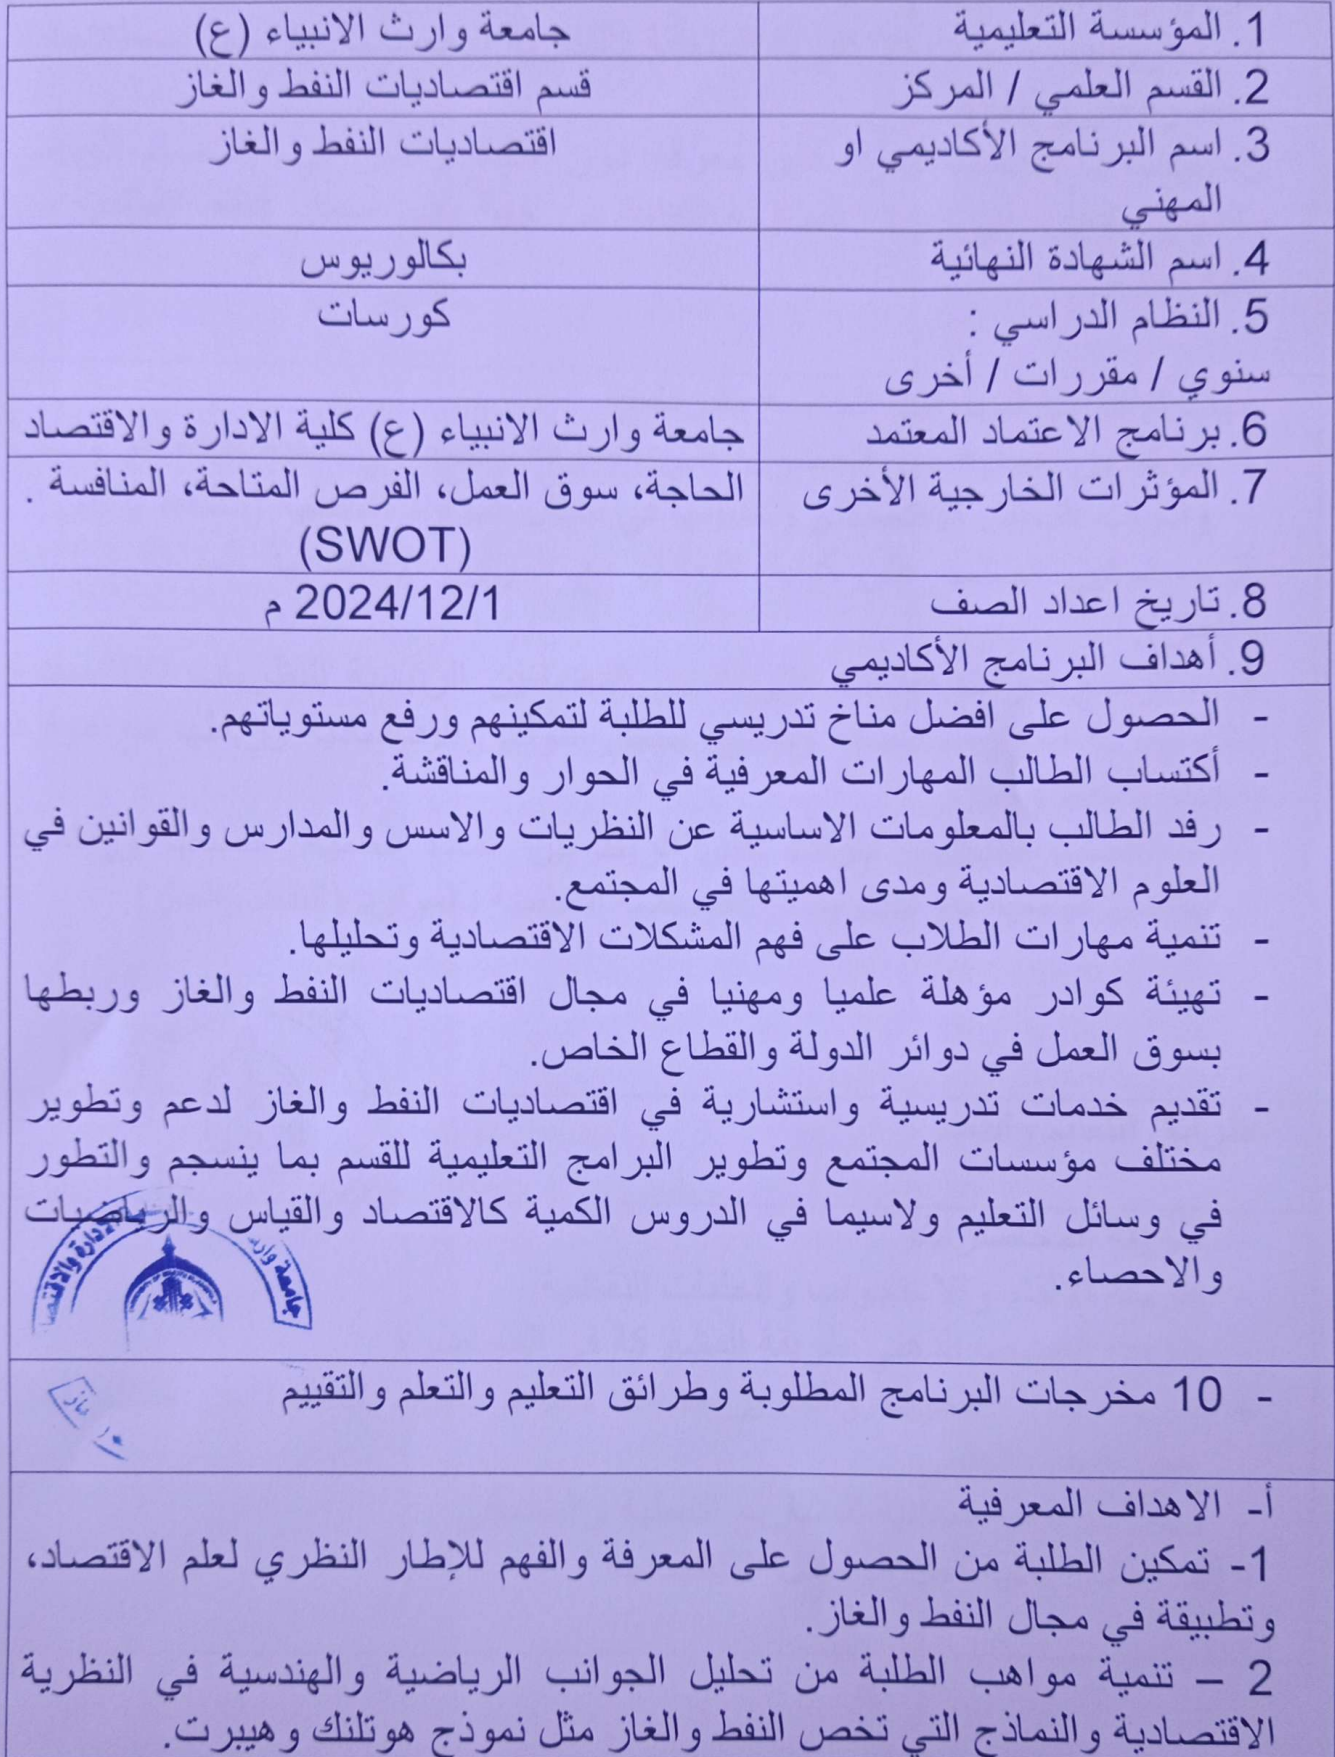 1. المؤسسة التعليمية جامعة وارث الانبياء (ع)
2. القسم العلمي / المركز قسم اقتصاديات النفط والغاز
3. اسم البرنامج الأكاديمي او اقتصاديات النفط والغاز
المهني
4. اسم الشهادة النهائية بكالوريوس
5. النظام الدراسي : كورسات
سنوي / مقررات / أخرى
6. برنامج الاعتماد المعتمد جامعة وارث الانبياء (ع) كلية الادارة والاقتصاد
7. المؤثرات الخارجية الأخرى الحاجة، سوق العمل، الفرص المتاحة، المنافسة .
(SWOT)
8. تاريخ اعداد الصف 2024/12/1 م
9. أهداف البرنامج الأكاديمي
- الحصول على افضل مناخ تدريسي للطلبة لتمكينهم ورفع مستوياتهم.
- أكتساب الطالب المهارات المعرفية في الحوار والمناقشة.
- رفد الطالب بالمعلومات الاساسية عن النظريات والاسس والمدارس والقوانين في
العلوم الاقتصادية ومدى اهميتها في المجتمع.
- تنمية مهارات الطلاب على فهم المشكلات الاقتصادية وتحليلها.
- تهيئة كوادر مؤهلة علميا ومهنيا في مجال اقتصاديات النفط والغاز وربطها
بسوق العمل في دوائر الدولة والقطاع الخاص.
- تقديم خدمات تدريسية واستشارية في اقتصاديات النفط والغاز لدعم وتطوير
مختلف مؤسسات المجتمع وتطوير البرامج التعليمية للقسم بما ينسجم والتطور
في وسائل التعليم ولاسيما في الدروس الكمية كالاقتصاد والقياس والرياضيات
والاحصاء.
- 10 مخرجات البرنامج المطلوبة وطرائق التعليم والتعلم والتقييم
أ- الاهداف المعرفية
1- تمكين الطلبة من الحصول على المعرفة والفهم للإطار النظري لعلم الاقتصاد،
وتطبيقة في مجال النفط والغاز.
2 – تنمية مواهب الطلبة من تحليل الجوانب الرياضية والهندسية في النظرية
الاقتصادية والنماذج التي تخص النفط والغاز مثل نموذج هوتلنك وهيبرت.